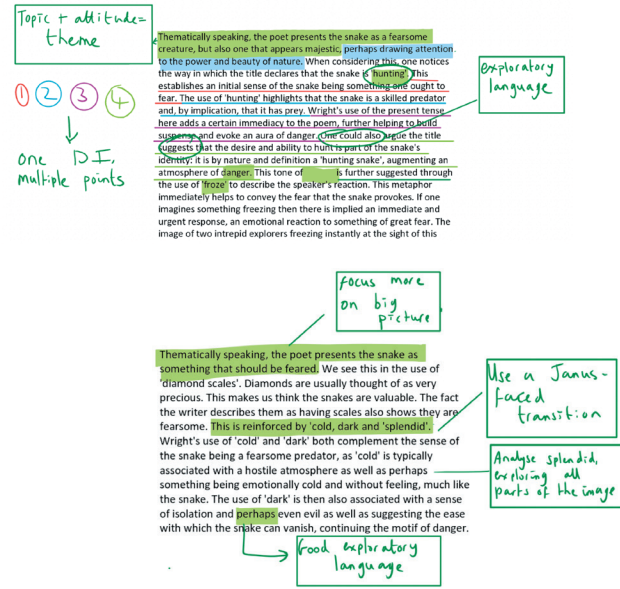 Topic + attitude=
theme
Thematically speaking, the poet presents the snake as a fearsome
creature, but also one that appears majestic, perhaps drawing attention
to the power and beauty of nature. When considering this, one notices
the way in which the title declares that the snake is 'hunting'. This
establishes an initial sense of the snake being something one ought to
fear. The use of 'hunting' highlights that the snake is a skilled predator
and, by implication, that it has prey. Wright's use of the present tense
here adds a certain immediacy to the poem, further helping to build
suspense and evoke an aura of danger. One could also argue the title
suggests that the desire and ability to hunt is part of the snake's
identity: it is by nature and definition a 'hunting snake', augmenting an
atmosphere of danger. This tone of is further suggested through
the use of 'froze' to describe the speaker's reaction. This metaphor
immediately helps to convey the fear that the snake provokes. If one
imagines something freezing then there is implied an immediate and
urgent response, an emotional reaction to something of great fear. The
image of two intrepid explorers freezing instantly at the sight of this
exploratory
language
1 2 3 4
one D.I,
multiple points
focus more
on big
picture
Thematically speaking, the poet presents the snake as
something that should be feared. We see this in the use of
'diamond scales'. Diamonds are usually thought of as very
precious. This makes us think the snakes are valuable. The fact
the writer describes them as having scales also shows they are
fearsome. This is reinforced by 'cold, dark and 'splendid'.
Wright's use of 'cold' and 'dark' both complement the sense of
the snake being a fearsome predator, as 'cold' is typically
associated with a hostile atmosphere as well as perhaps
something being emotionally cold and without feeling, much like
the snake. The use of 'dark' is then also associated with a sense
of isolation and perhaps even evil as well as suggesting the ease
with which the snake can vanish, continuing the motif of danger.
Use a Janus-
faced
transition
Analyse splendid,
exploring all
parts of the image
Good exploratory
language